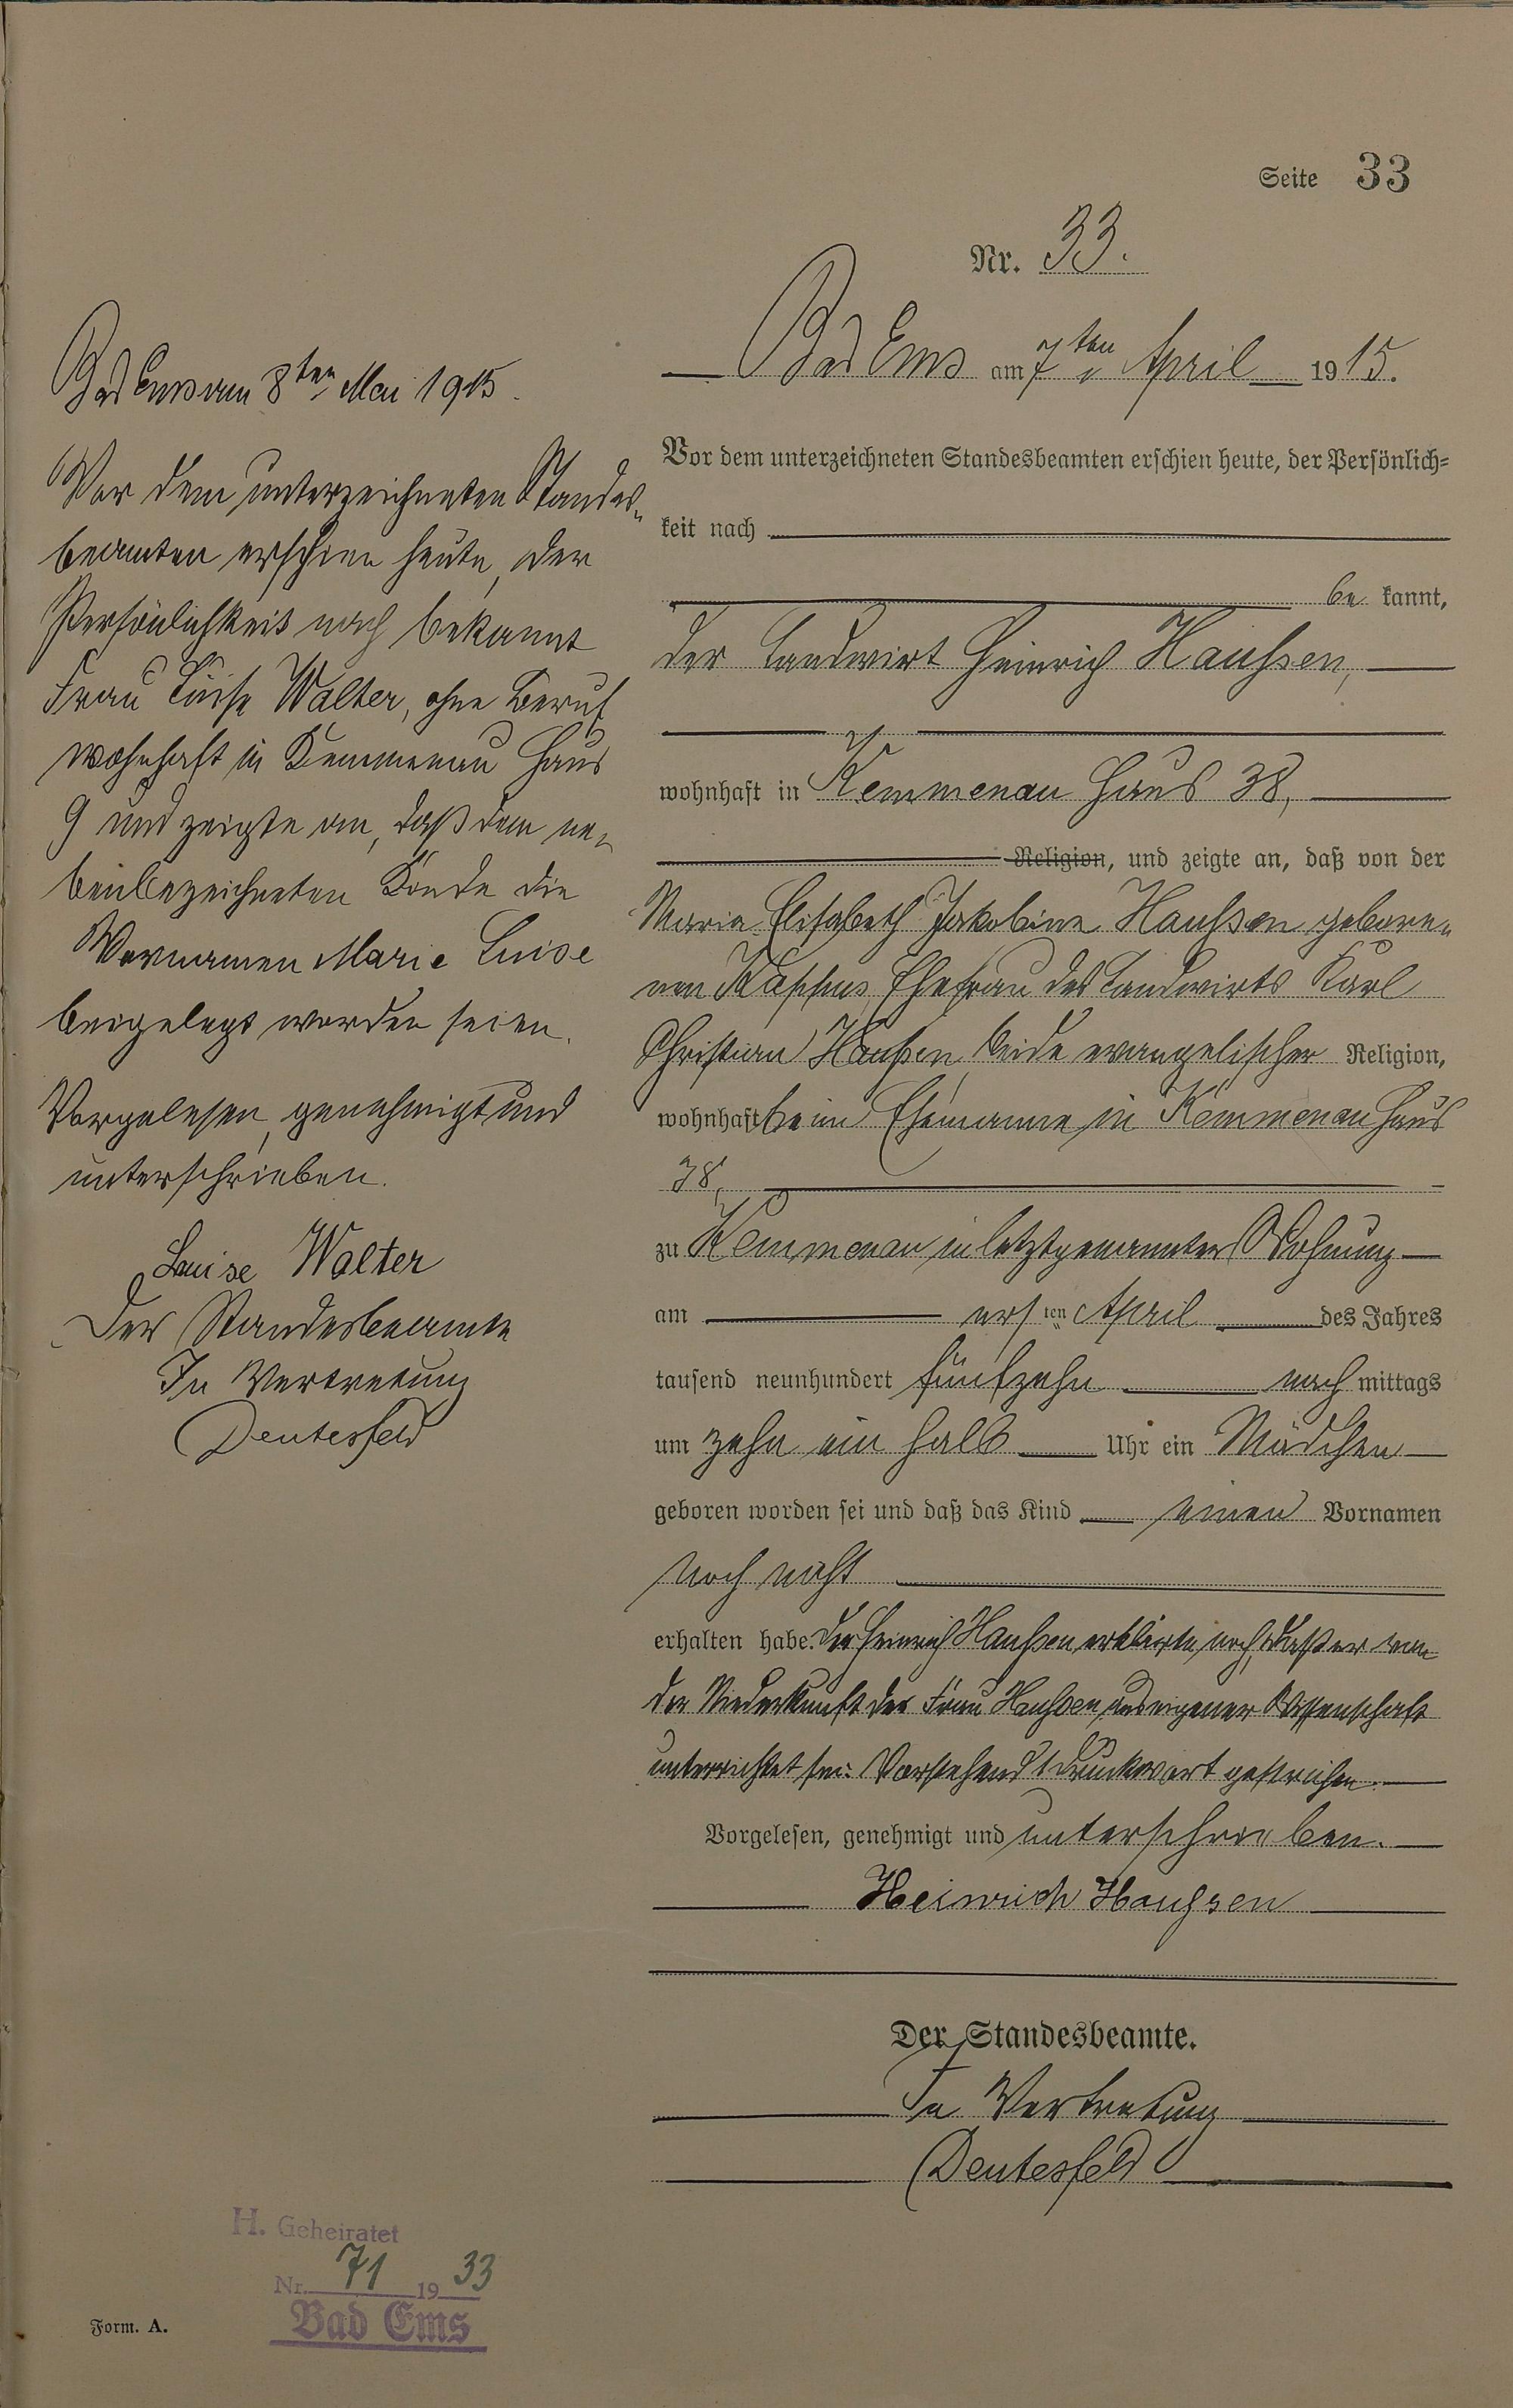 Seite 33
Nr. 33.
Bad Ems am 7ten April 1915.
Vor dem unterzeichneten Standesbeamten erschien heute, der Persönlich=
keit nach
be kannt,
der Landwirt Heinrich Haußen,
wohnhaft in Kemmenau Haus 38,
Religion, und zeigte an, daß von der
Maria Elisabeth Jakobine Haußen gebore-
nen Ehefrau des Landwirts Karl
Christian Haußen, beide evangelischer Religion,
wohnhaft beim Ehemanne in Kemmenau Haus
38,
zu Kemmenau in letztgenannter Wohnung
am ersten April des Jahres
tausend neunhundert fünfzehn nach mittags
um zehn ein halb Uhr ein Mädchen
geboren worden sei und daß das Kind einen Vornamen
noch nicht
erhalten habe. Der Heinrich Haußen erklärte noch, daß er von
der Niederkunft der Frau Haußen aus eigener Wissenschaft
unterrichtet sei. Vorstehend 1 Druckwort gestrichen.
Vorgelesen, genehmigt und unterschrieben.
Heinrich Haußen
Der Standesbeamte.
In Vertretung
Deutesfeld
Bad Ems am 8ten Mai 1915.
Vor dem unterzeichneten Standes-
beamten erschien heute, der
Persönlichkeit nach bekannt
Frau Luise Walter, ohne Beruf
wohnhaft in Kemmenau Haus
9 und zeigte an, daß dem ne-
benbezeichneten Kinde die
Vornamen Marie Luise
beigelegt worden seien.
Vorgelesen, genehmigt und
unterschrieben.
Luise Walter
Der Standesbeamte
In Vertretung
Deutesfeld
H. Geheiratet
Nr. 71 1933
Bad Ems
Form. A.